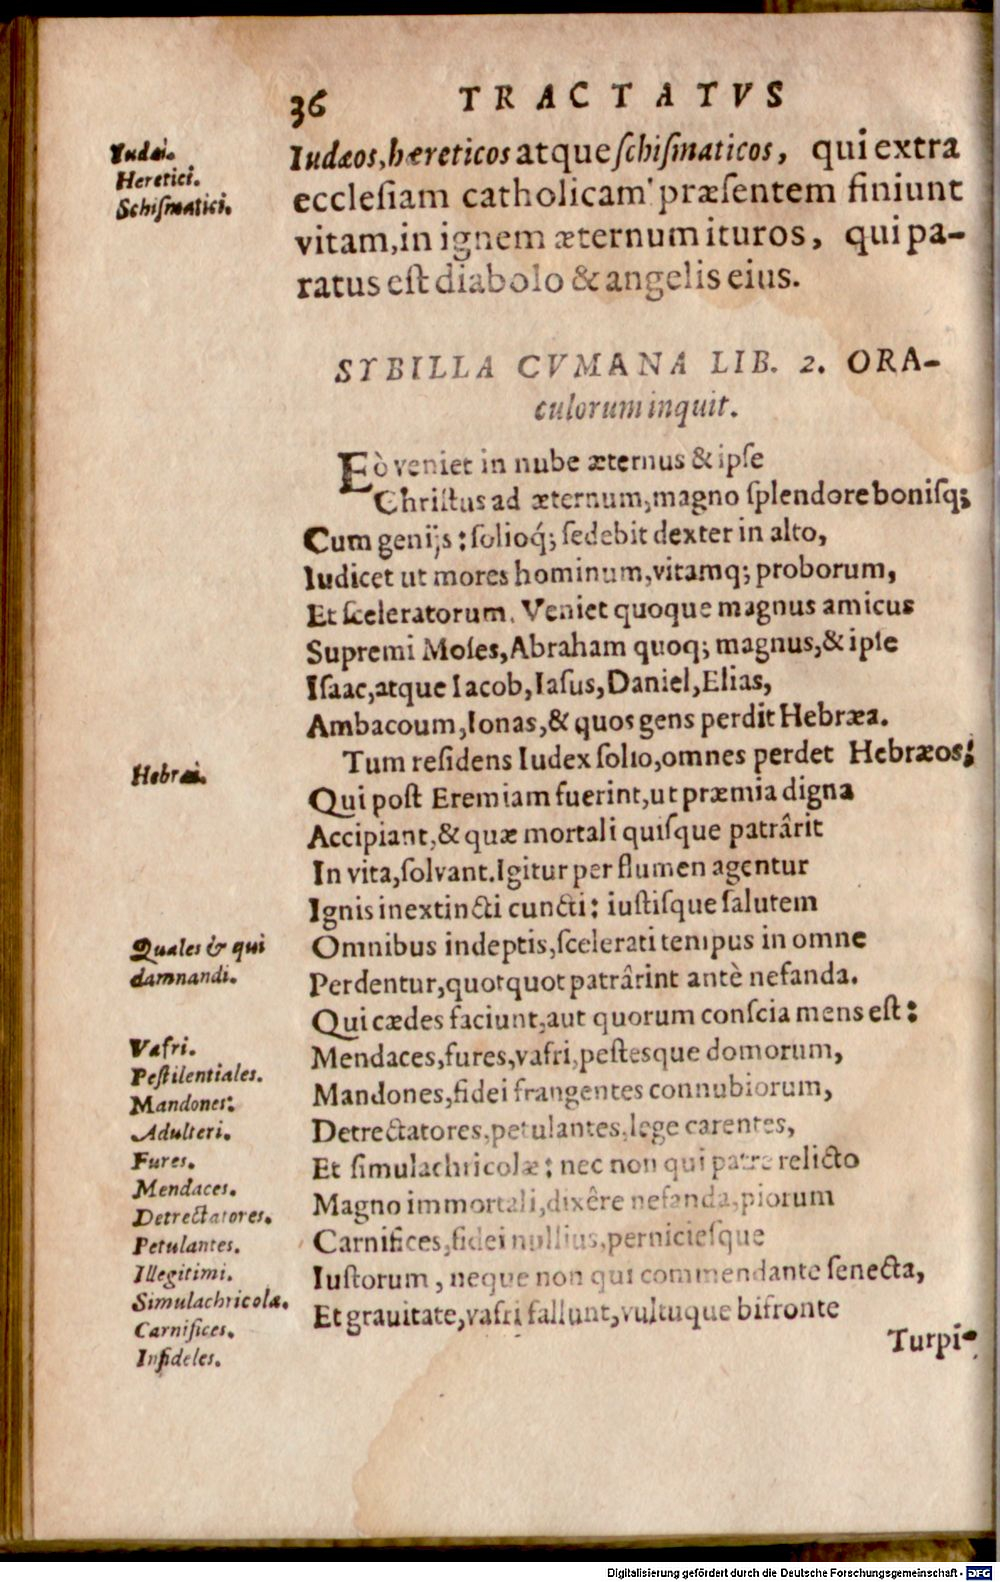 36 TRACTATVS
Iudæi.
Heretici.
Schiſmatici.
Iudæos, hæreticos atque ſchiſmaticos, qui extra
ecclesiam catholicam præſentem finiunt
vitam, in ignem æternum ituros, qui pa-
ratus eſt diabolo & angelis eius.
SYBILLA CVMANA LIB. 2. ORA-
culorum inquit.
Eò veniet in nube æternus & ipſe
Chriſtus ad æternum, magno ſplendore boniſq;
Cum genijs: ſolioq́; ſedebit dexter in alto,
Iudicet ut mores hominum, vitamq; proborum,
Et ſceleratorum. Veniet quoque magnus amicus
Supremi Moſes, Abraham quoq; magnus, & ipſe
Iſaac, atque Iacob, Iaſus, Daniel, Elias,
Ambacoum, Ionas, & quos gens perdit Hebræa.
Tum reſidens Iudex ſolio, omnes perdet Hebræos;
Hebræi.
Qui poſt Eremiam fuerint, ut præmia digna
Accipiant, & quæ mortali quiſque patrârit
In vita, ſolvant. Igitur per flumen agentur
Ignis inextincti cuncti: iuſtiſque ſalutem
Quales & qui
damnandi.
Omnibus indeptis, ſcelerati tempus in omne
Perdentur, quotquot patrârint antè nefanda.
Qui cædes faciunt, aut quorum conſcia mens eſt:
Mendaces, fures, vafri, peſtesque domorum,
Mandones, fidei frangentes connubiorum,
Detrectatores, petulantes, lege carentes,
Et ſimulachricolæ: nec non qui patre relicto
Magno immortali, dixêre nefanda, piorum
Carnifices, fidei nullius, pernicieſque
Iuſtorum, neque non qui commendante ſenecta,
Et gravitate, vafri fallunt, vultuque bifronte
Vafri.
Peſtilentiales.
Mandones.
Adulteri.
Fures.
Mendaces.
Detrectatores.
Petulantes.
Illegitimi.
Simulachricolæ.
Carnifices.
Infideles.
Turpi-
Digitalisierung gefördert durch die Deutsche Forschungsgemeinschaft - DFG